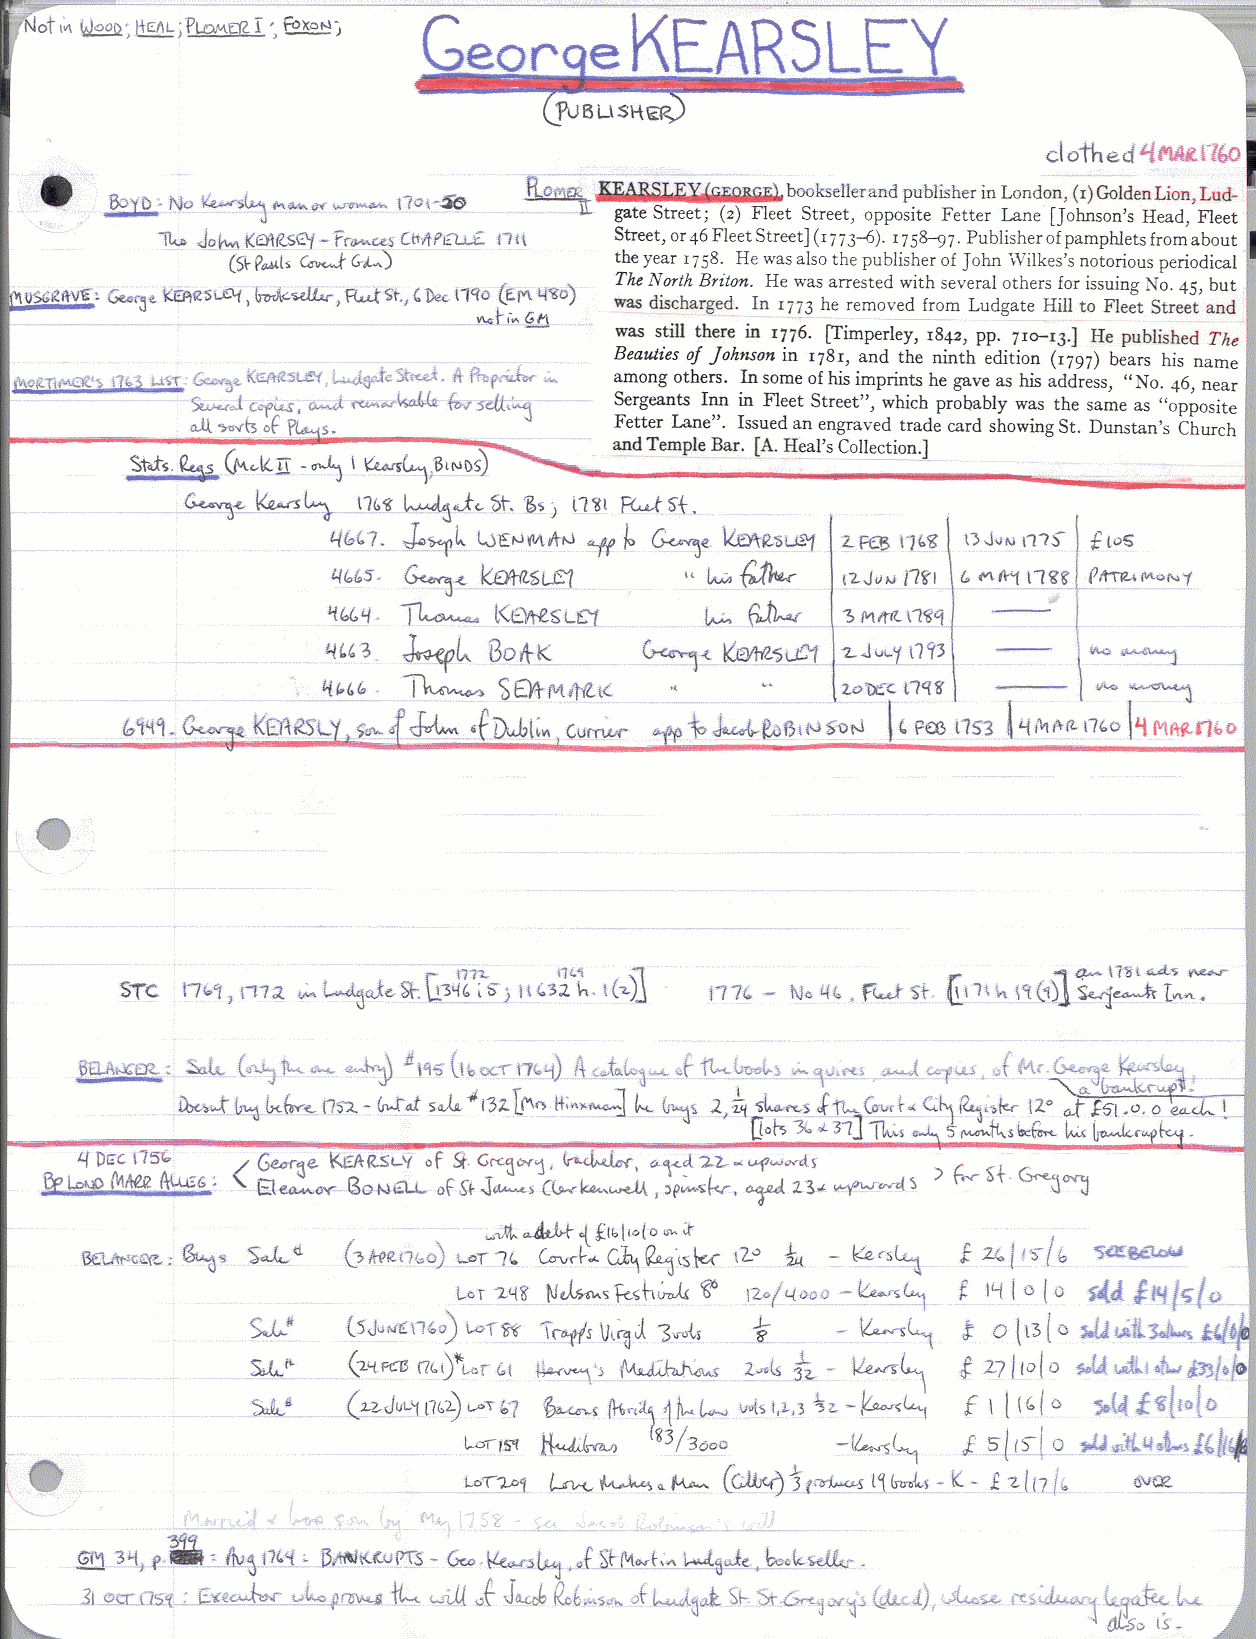 Not in WOOD; HEAL; PLOMER I; FOXON;
George KEARSLEY
(PUBLISHER)
clothed 4 MAR 1760
BOYD: No Kearsley man or woman 1701-50
Tho John KEARSEY - Frances CHAPELLE 1711
(St Pauls Covent Gdn)
MUSGRAVE: George KEARSLEY, bookseller, Fleet St., 6 Dec 1790 (EM 480)
not in GM
MORTIMER'S 1763 LIST: George KEARSLEY, Ludgate Street. A Proprietor in
Several copies, and remarkable for selling
all sorts of Plays.
PLOMER II
KEARSLEY (GEORGE), bookseller and publisher in London, (1) Golden Lion, Lud-
gate Street; (2) Fleet Street, opposite Fetter Lane [Johnson's Head, Fleet
Street, or 46 Fleet Street] (1773–6). 1758–97. Publisher of pamphlets from about
the year 1758. He was also the publisher of John Wilkes's notorious periodical
The North Briton. He was arrested with several others for issuing No. 45, but
was discharged. In 1773 he removed from Ludgate Hill to Fleet Street and
was still there in 1776. [Timperley, 1842, pp. 710–13.] He published The
Beauties of Johnson in 1781, and the ninth edition (1797) bears his name
among others. In some of his imprints he gave as his address, "No. 46, near
Sergeants Inn in Fleet Street", which probably was the same as "opposite
Fetter Lane". Issued an engraved trade card showing St. Dunstan's Church
and Temple Bar. [A. Heal's Collection.]
Stats. Regs (McK II - only 1 Kearsley, BINDS)
George Kearsley 1768 Ludgate St. Bs; 1781 Fleet St.
4667. Joseph WENMAN app to George KEARSLEY 2 FEB 1768 13 JUN 1775 £105
4665. George KEARSLEY " his father 12 JUN 1781 6 MAY 1788 PATRIMONY
4664. Thomas KEARSLEY his father 3 MAR 1789 —
4663. Joseph BOAK George KEARSLEY 2 JULY 1793 — no money
4666. Thomas SEAMARK " " 20 DEC 1798 — no money
6949. George KEARSLY, son of John of Dublin, currier app to Jacob ROBINSON 6 FEB 1753 4 MAR 1760 4 MAR 1760
1772 1769 an 1781 ads near
STC 1769, 1772 in Ludgate St. [1346 i 5; 11632 h. 1(2)] 1776 - No 46, Fleet St. [1171 h 19(9)] Serjeants Inn.
BELANGER: Sale (only the one entry) #195 (16 OCT 1764) A catalogue of the books in quires, and copies, of Mr. George Kearsley,
a bankrupt.
Doesnt buy before 1752 - but at sale #132 [Mrs Hinxman] he buys 2, 1/24 shares of the Court & City Register 12° at £51.0.0 each!
[lots 36 & 37] This only 5 months before his bankruptcy.
4 DEC 1756
BP LOND MARR ALLEG: George KEARSLY of St. Gregory, bachelor, aged 22 & upwards
Eleanor BONELL of St James Clerkenwell, spinster, aged 23 & upwards > for St. Gregory
with a debt of £16/10/0 on it
BELANGER: Buys Sale # (3 APR 1760) LOT 76 Court & City Register 12° 1/24 - Kersley £ 26/15/6 SEE BELOW
LOT 248 Nelsons Festivals 8° 120/4000 - Kearsley £ 14/0/0 sold £14/5/0
Sale # (5 JUNE 1760) LOT 88 Trapps Virgil 3 vols 1/8 - Kearsley £ 0/13/0 sold with 3 others £6/0/0
Sale # (24 FEB 1761)* LOT 61 Hervey's Meditations 2 vols 1/32 - Kearsley £ 27/10/0 sold with 1 other £33/0/0
Sale # (22 JULY 1762) LOT 67 Bacons Abridg of the Law vols 1,2,3 1/32 - Kearsley £ 1/16/0 sold £8/10/0
LOT 159 Hudibras 183/3000 - Kearsley £ 5/15/0 sold with 4 others £6/16/6
LOT 209 Love Makes a Man (Cibber) 1/3 produces 19 books - K - £ 2/17/6 OVER
Married & has son by May 1758 - see Jacob Robinson's will
399
GM 34, p. : Aug 1764: BANKRUPTS - Geo. Kearsley, of St Martin Ludgate, bookseller.
31 OCT 1759: Executor who proves the will of Jacob Robinson of Ludgate St. St. Gregory's (decd), whose residuary legatee he
also is.